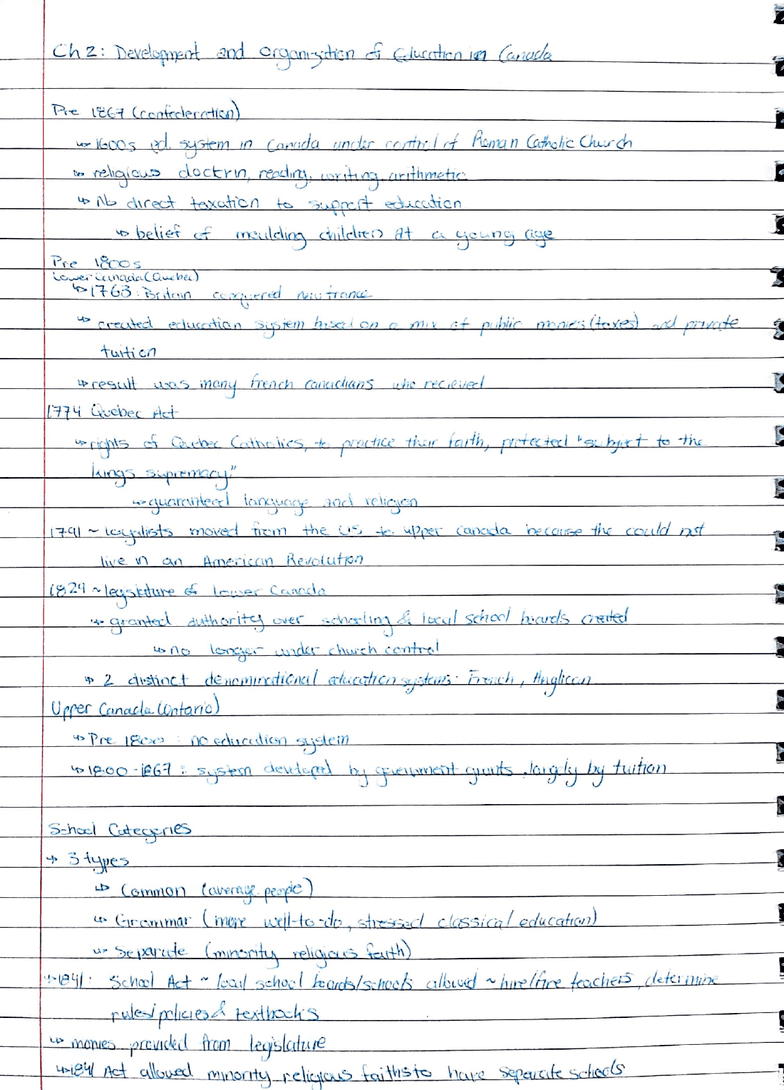 Ch 2: Development and organization of Education in Canada
Pre 1867 (confederation)
↳ 1600s ed. system in Canada under control of Roman Catholic Church
↳ religious doctrin, reading, writing, arithmetic
↳ No direct taxation to support education
↳ belief of moulding children at a young age
Pre 1800s
Lower Canada (Quebec)
↳ 1763: Britain conquered new france
↳ created education system based on a mix of public monies (taxes) and private
tuition
↳ result was many french canadians who recieved
1774 Quebec Act
↳ rights of Quebec Catholics, to practice their faith, protected "subject to the
kings supremacy"
↳ guaranteed language and religion
1791 ~ loyalists moved from the US to upper canada because the could not
live in an American Revolution
1824 ~ legislture of lower Canada
↳ granted authority over schooling & local school boards created
↳ no longer under church control
↳ 2 distinct denominational education systems: French, Anglican
Upper Canada (Ontario)
↳ Pre 1800: no education system
↳ 1800-1867: system developed by government grants, largly by tuition
School Categories
↳ 3 types
↳ Common (average people)
↳ Grammar (more well-to-do, stressed classical education)
↳ Separate (minority religious faith)
↳ 1841: School Act ~ local school boards/schools allowed ~ hire/fire teachers, determine
rules/policies & textbooks
↳ monies provided from legislature
↳ 1841 Act allowed minority religious faiths to have separate schools